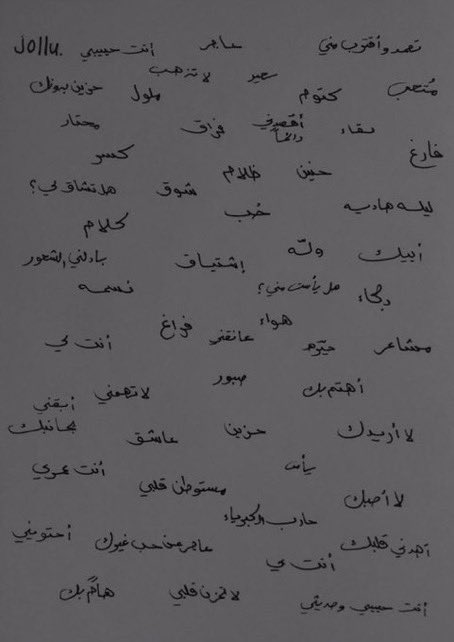 تمدد وأقترب مني عاجز أنت حبيبي Jollu.
لا تذهب سعيد
مُتعب كتوم ملول حزين بدونك
لقاء أقصدني دائماً فراق محتار
فارغ حنين ظلام شوق كسر
ليله هاديه حُب هل تشتاق لي؟
كلام
أبيك ولّه إشتياق بادلني الشعور
دعاء هل يأست مني؟ نسمه
هواء فراغ
مشاعر متيّم عانقني أنت لي
أهتم بك صبور لا تهمني
أبقني بجانبك
لا أريدك حزين عاشق
يأس أنت عمري
لا أحبك مستوطن قلبي
حارب الكبرياء
أهدني قلبك عاجز عن حب غيرك أحتويني
أنت مي
أنت حبيبي وحديثي لا تحزن قلبي هائمٌ بك